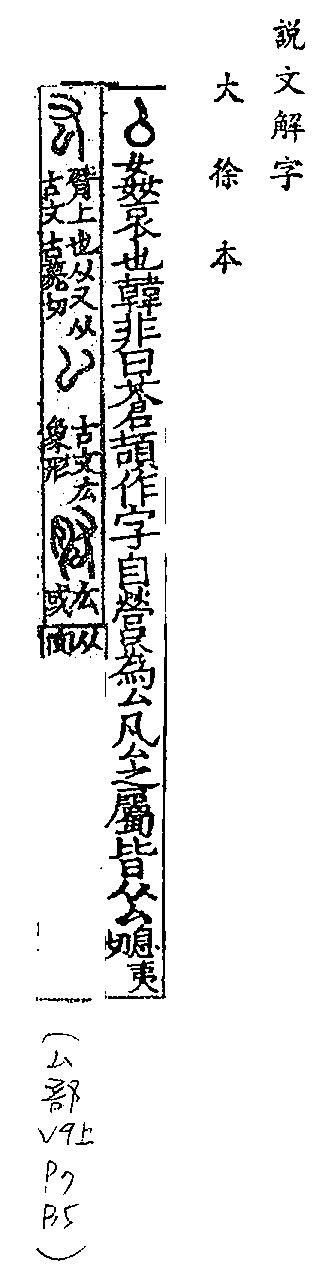 說文解字
大徐本
厶 姦衺也韓非曰蒼頡作字自營爲厶凡厶之屬皆从厶 息夷切
厷 臂上也从又从古文古薨切 𠃋 古文厷象形 肱 厷或从肉
(厶部
V9上
P7
B5)